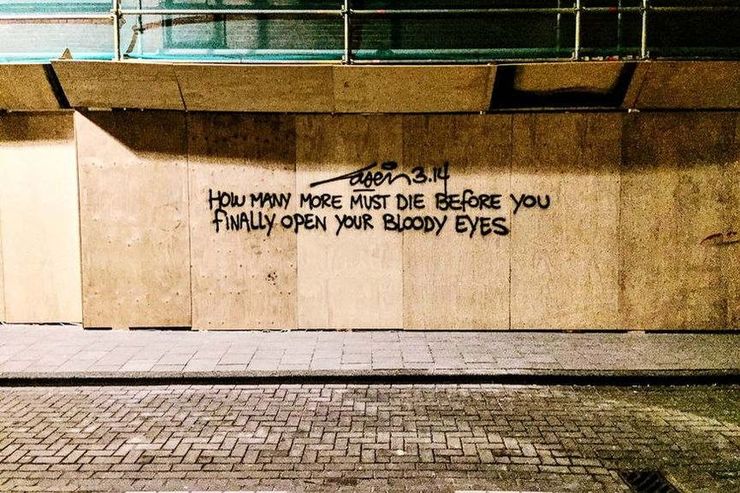 Laser 3.14
HOW MANY MORE MUST DIE BEFORE YOU
FINALLY OPEN YOUR BLOODY EYES